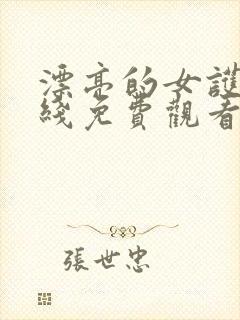 漂亮的女護
綫免費觀看
張世忠